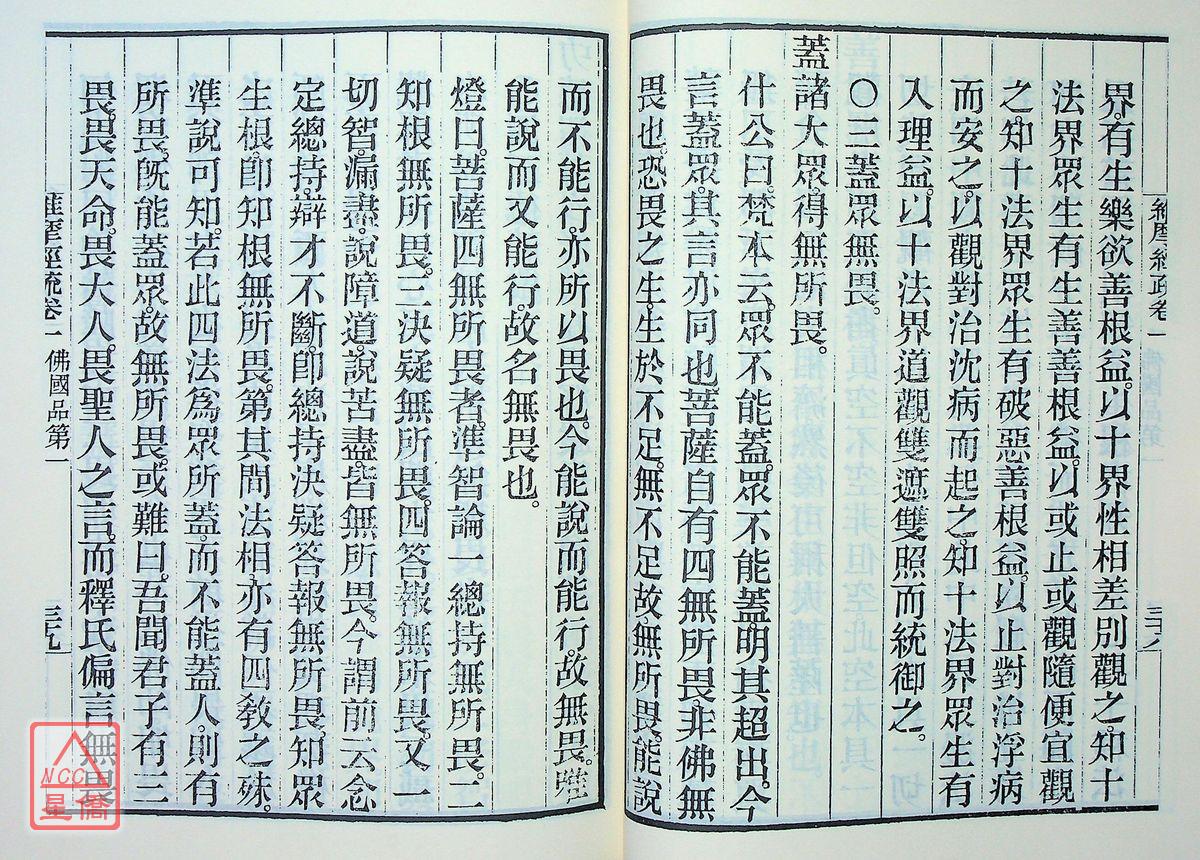 維摩經疏卷一
三十八
界。有生樂欲善根益。以十界性相差別觀之。知十
法界眾生有生善善根益。以或止或觀隨便宜觀
之。知十法界眾生有破惡善根益。以止對治浮病
而安之。以觀對治沈病而起之。知十法界眾生有
入理益。以十法界道觀雙遮雙照而統御之。
○三蓋眾無畏。
蓋諸大眾。得無所畏。
什公曰。梵本云。眾不能蓋。眾不能蓋。明其超出。今
言蓋眾。其言亦同也。菩薩自有四無所畏。非佛無
畏也。恐畏之生。生於不足。無不足故。無所畏。能說
而不能行。亦所以畏也。今能說而能行。故無畏。
能說而又能行。故名無畏也。
燈曰。菩薩四無所畏者。準智論一總持無所畏。二
知根無所畏。三決疑無所畏。四答報無所畏。又一
切智。漏盡。說障道。說苦盡。皆無所畏。今謂前云念
定總持。辯才不斷。即總持決疑答報無所畏。知眾
生根。即知根無所畏。第其間法相。亦有四教之殊。
準說可知。若此四法為眾所蓋。而不能蓋人。則有
所畏。既能蓋眾。故無所畏。或難曰。吾聞君子有三
畏。畏天命。畏大人。畏聖人之言。而釋氏偏言無畏
維摩經疏卷一 佛國品第一
三十九
NCC
星僑